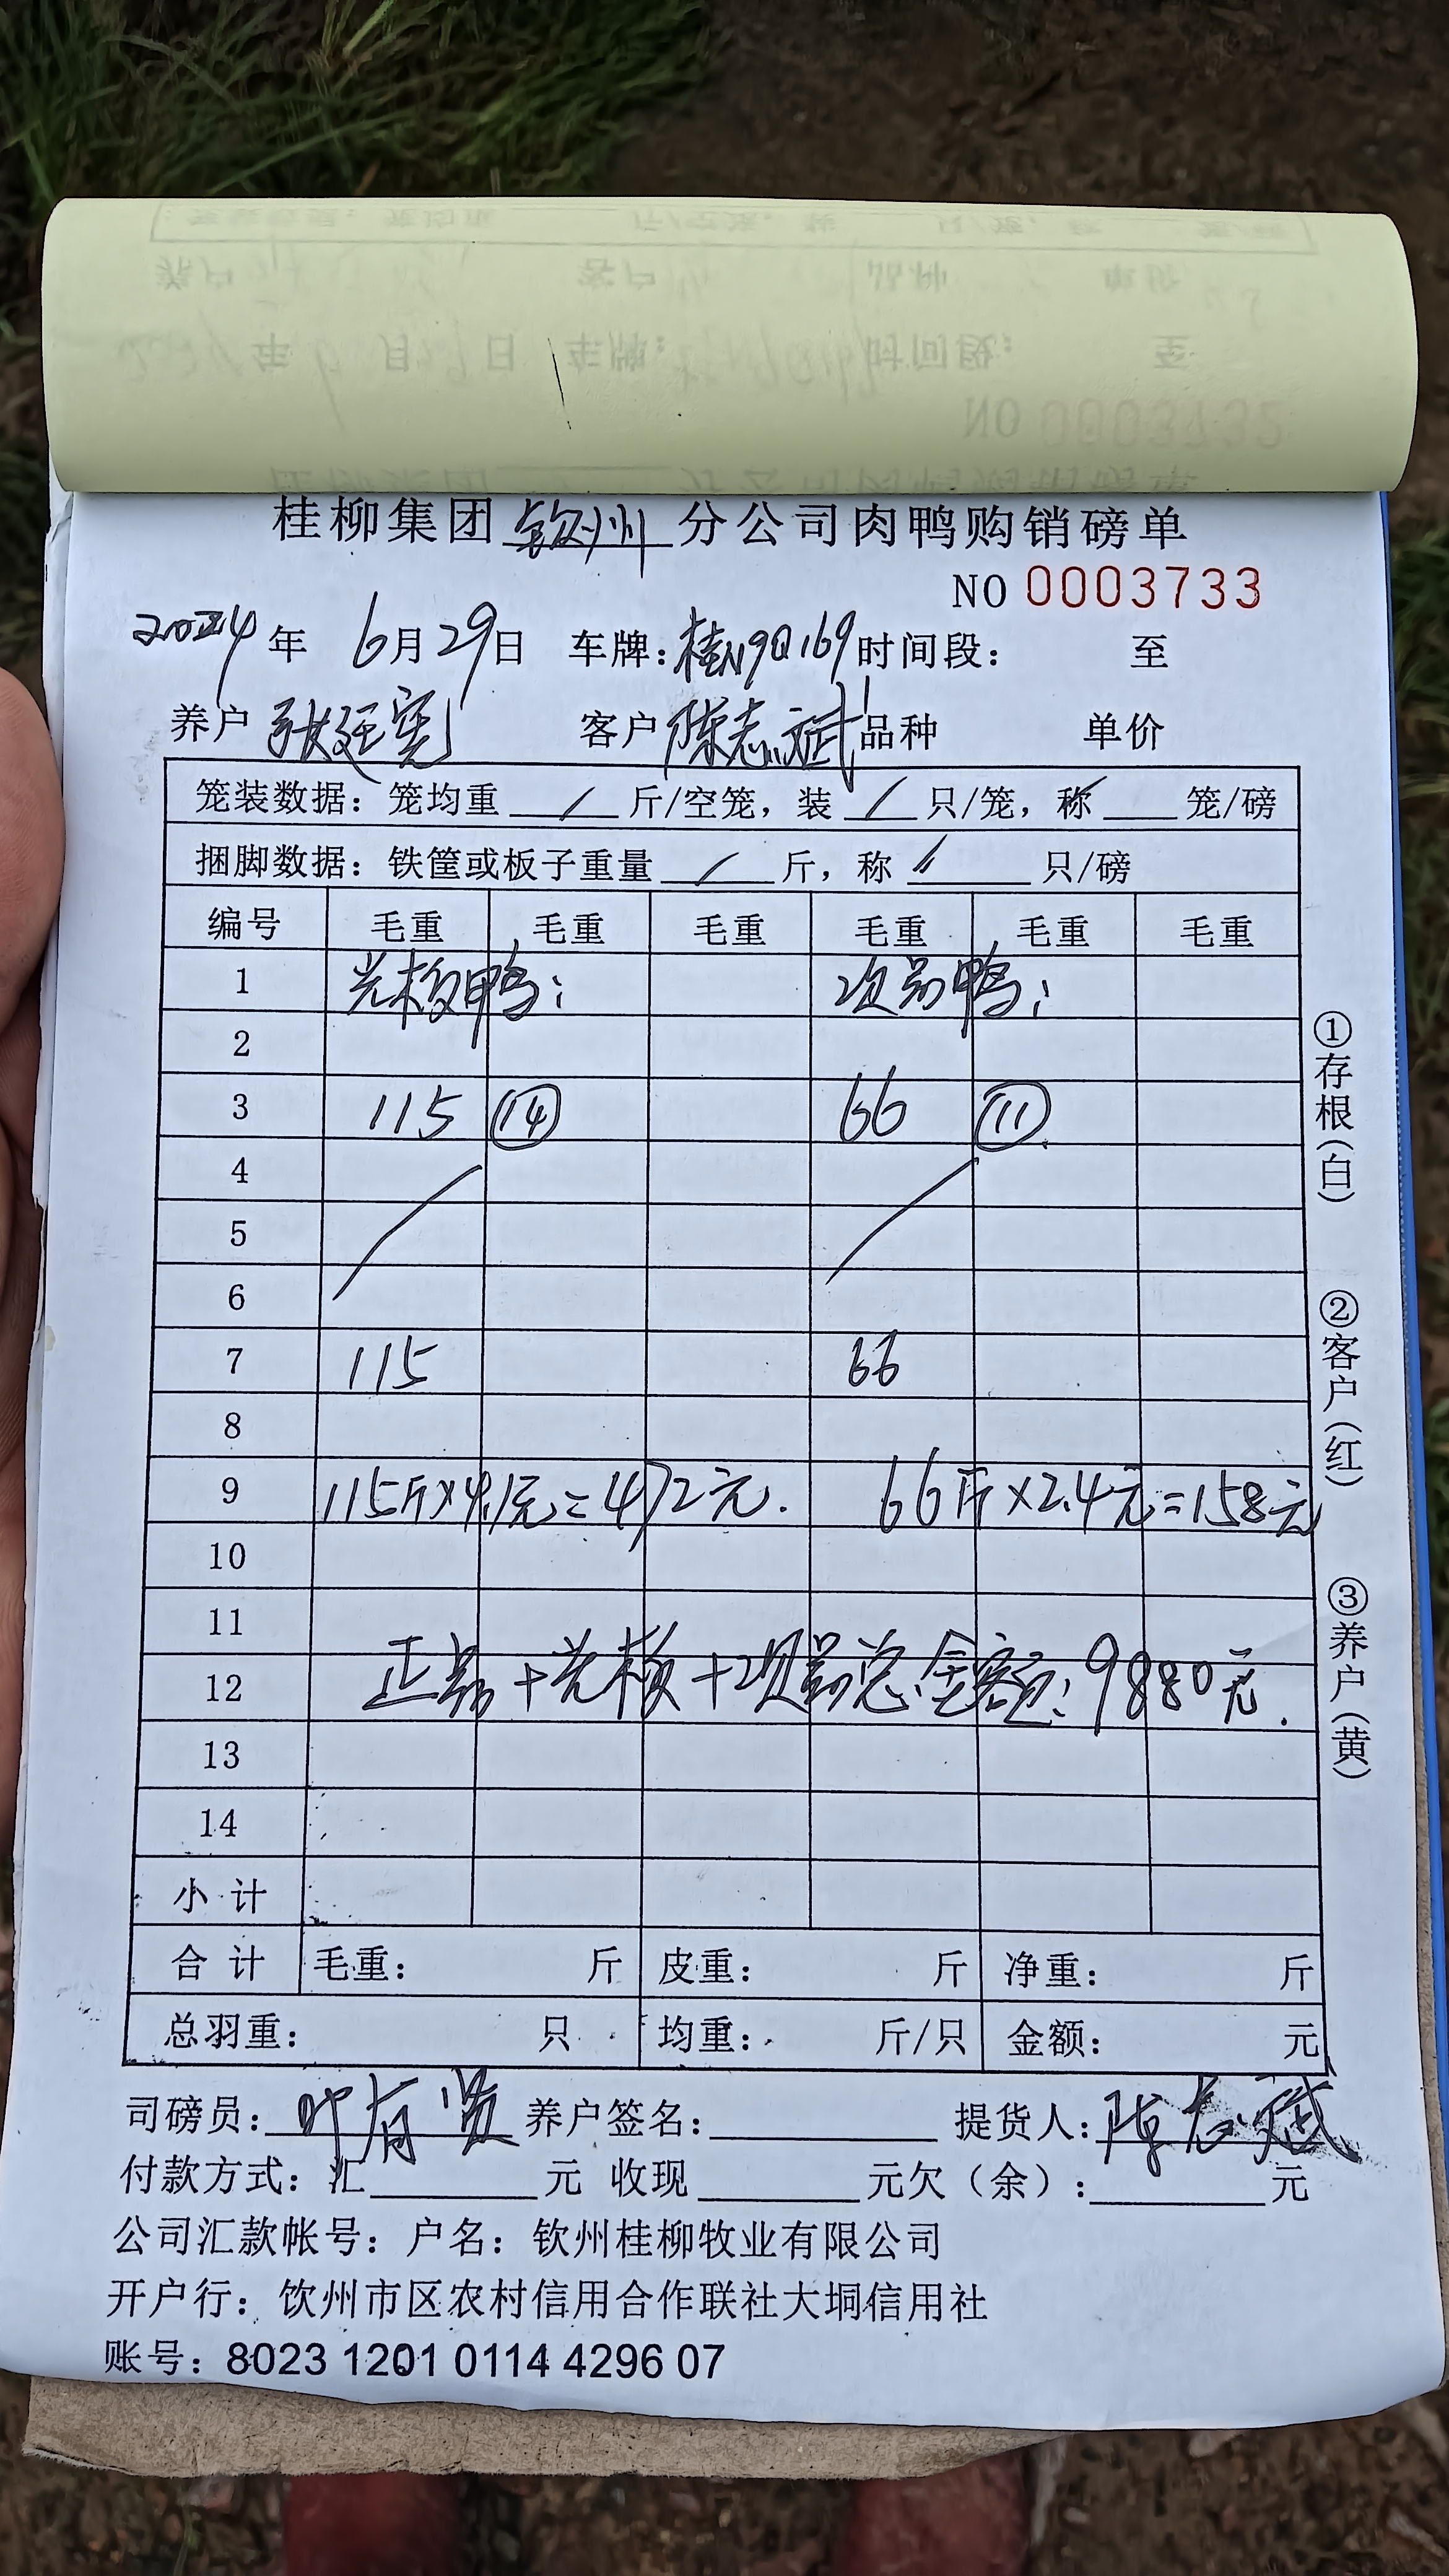 NO 0003732
桂柳集团 钦州 分公司肉鸭购销磅单
NO 0003733
2024年 6月29日 车牌:桂N9D169 时间段: 至
养户 张廷宪 客户 陈志斌 品种 单价
笼装数据: 笼均重 / 斤/空笼, 装 / 只/笼, 称 笼/磅
捆脚数据: 铁筐或板子重量 / 斤, 称 / 只/磅
编号 毛重 毛重 毛重 毛重 毛重 毛重
1 光板鸭: 次品鸭:
2
3 115 ⑭ 66 ⑪
4
5
6
7 115 66
8
9 115斤×4.1元=472元. 66斤×2.4元=158元
10
11
12 正品+光板+次品总金额:9880元.
13
14
小计
合计 毛重: 斤 皮重: 斤 净重: 斤
总羽重: 只 均重: 斤/只 金额: 元
司磅员: 叶有贤 养户签名: 提货人: 陈志斌
付款方式: 汇 元 收现 元欠(余): 元
公司汇款帐号: 户名: 钦州桂柳牧业有限公司
开户行: 钦州市区农村信用合作联社大垌信用社
账号: 8023 1201 0114 4296 07
①存根(白)
②客户(红)
③养户(黄)